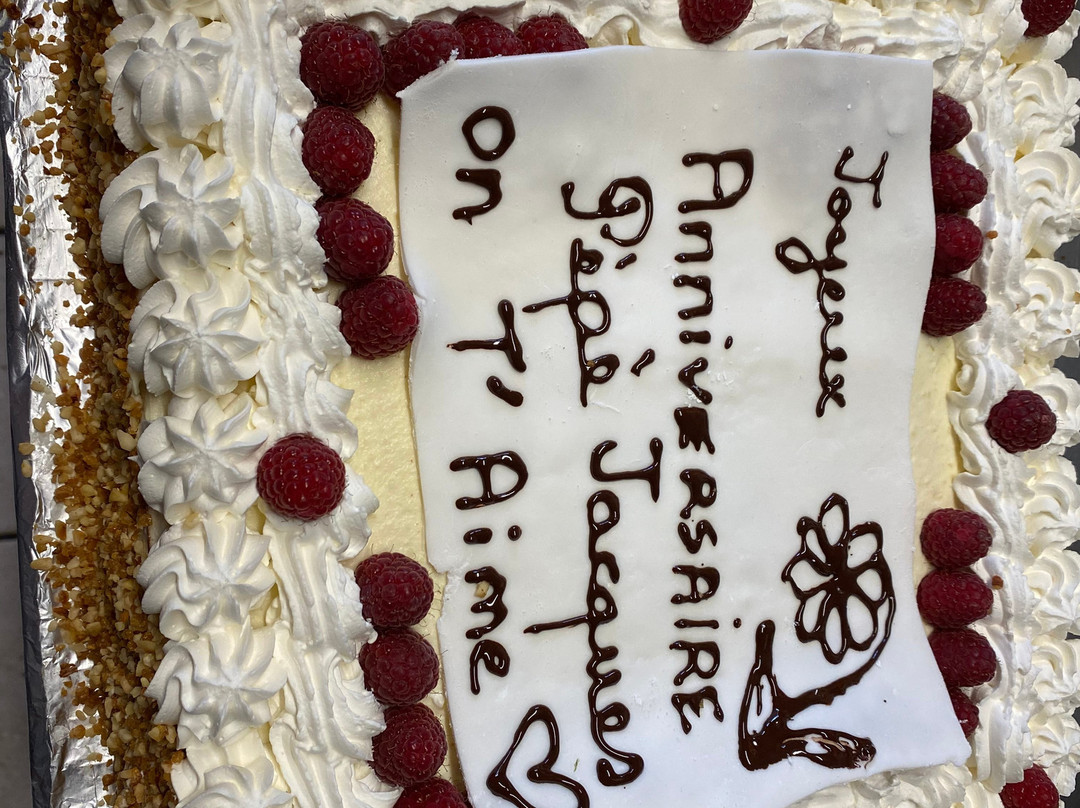 Joyeux
AnnivERSAiRE
Pépé Jacques
On T'Aime